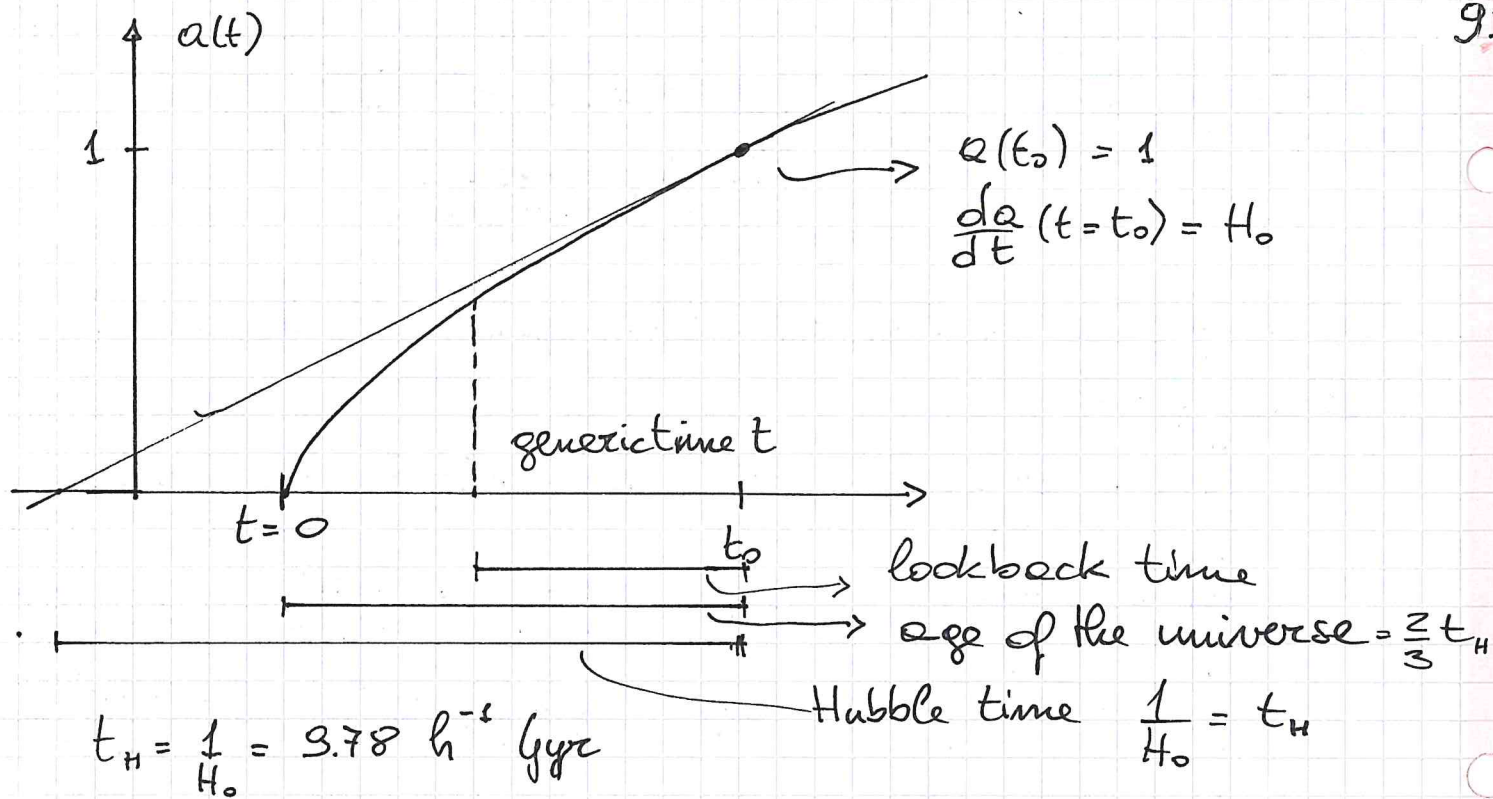 9.
a(t)
1
a(t₀) = 1
da/dt (t=t₀) = H₀
generic time t
t=0
t₀
lookback time
age of the universe = 2/3 t_H
Hubble time 1/H₀ = t_H
t_H = 1/H₀ = 9.78 h⁻¹ Gyr